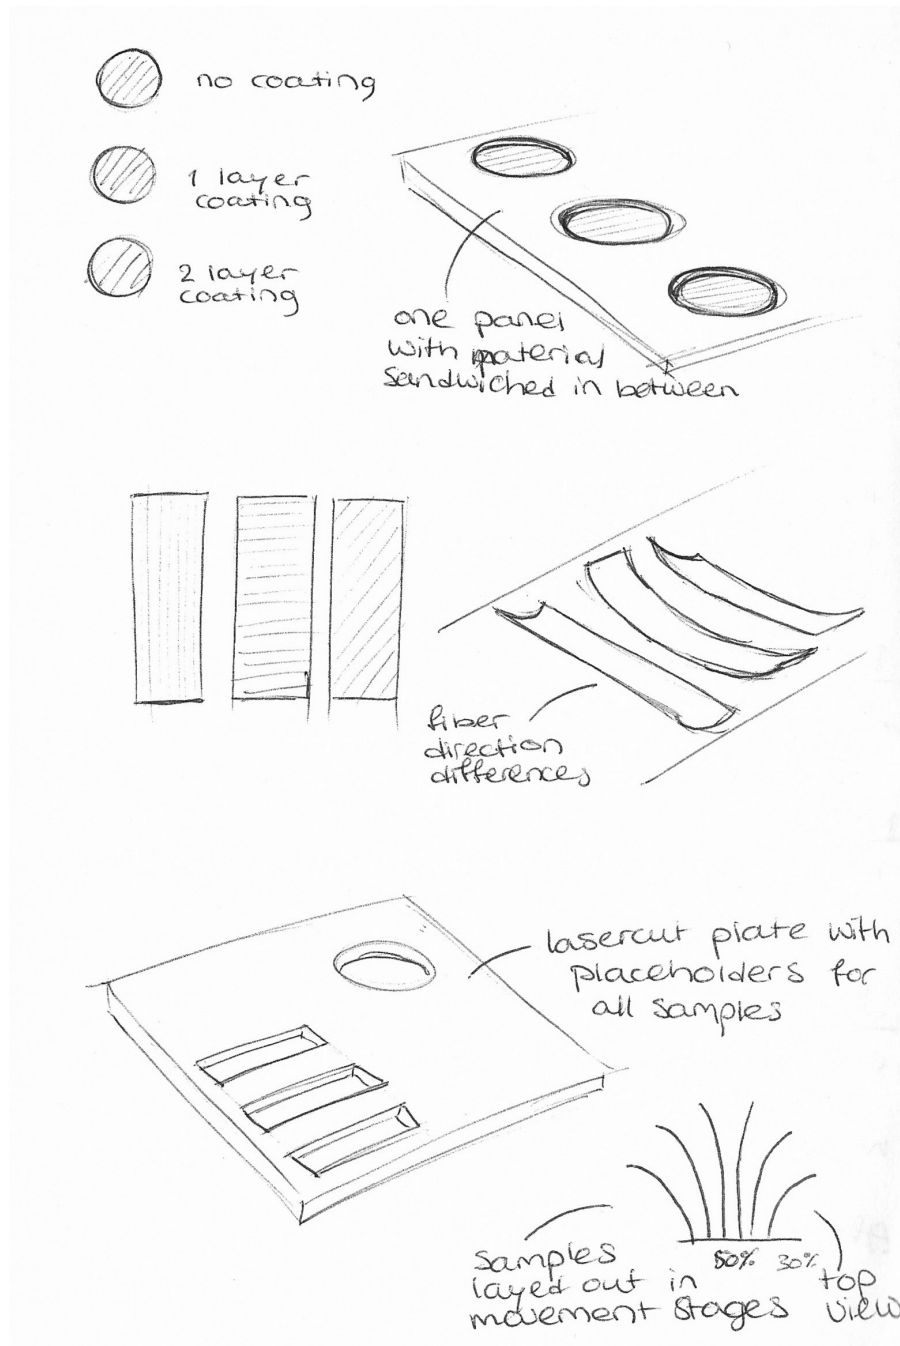 no coating
1 layer
coating
2 layer
coating
one panel
with material
sandwiched in between
fiber
direction
differences
lasercut plate with
placeholders for
all samples
50% 30%
samples
layed out in
movement stages
top
view